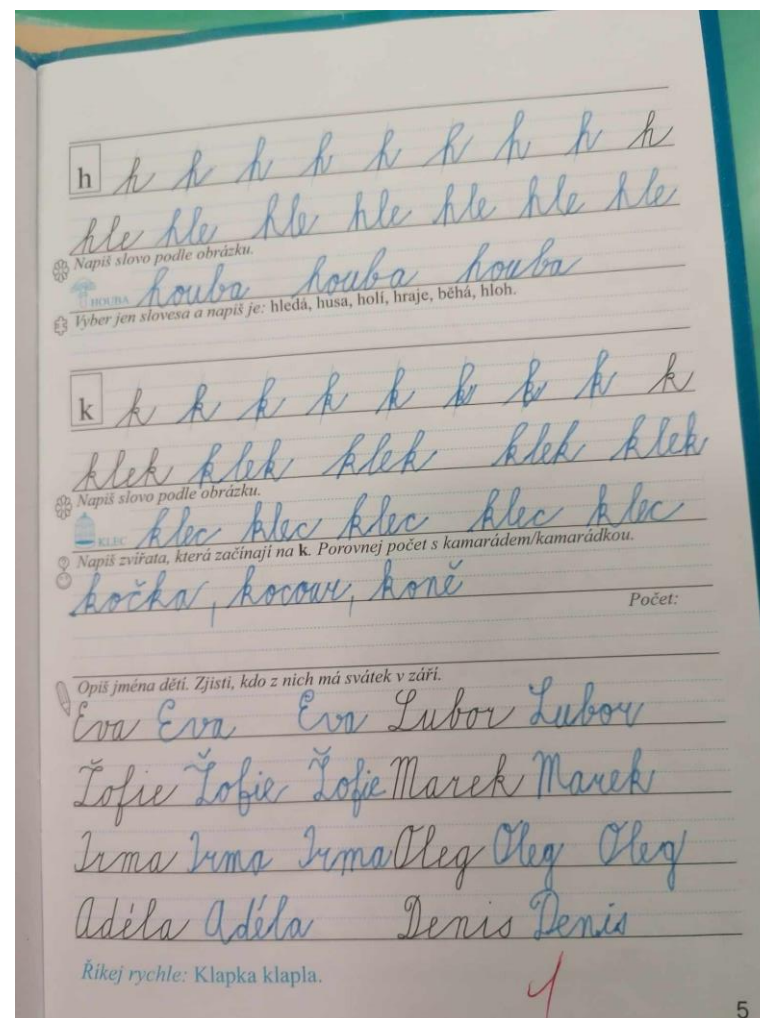 h h h h h h h h h h
hle hle hle hle hle hle hle
Napiš slovo podle obrázku.
HOUBA houba houba houba
Vyber jen slovesa a napiš je: hledá, husa, holí, hraje, běhá, hloh.
k k k k k k k k k k
klek klek klek klek klek
Napiš slovo podle obrázku.
KLEC klec klec klec klec klec
Napiš zvířata, která začínají na k. Porovnej počet s kamarádem/kamarádkou.
kočka, kocour, koně
Počet:
Opiš jména dětí. Zjisti, kdo z nich má svátek v září.
Eva Eva Eva Lubor Lubor
Žofie Žofie Žofie Marek Marek
Irma Irma Irma Oleg Oleg Oleg
Adéla Adéla Denis Denis
Říkej rychle: Klapka klapla.
1
5